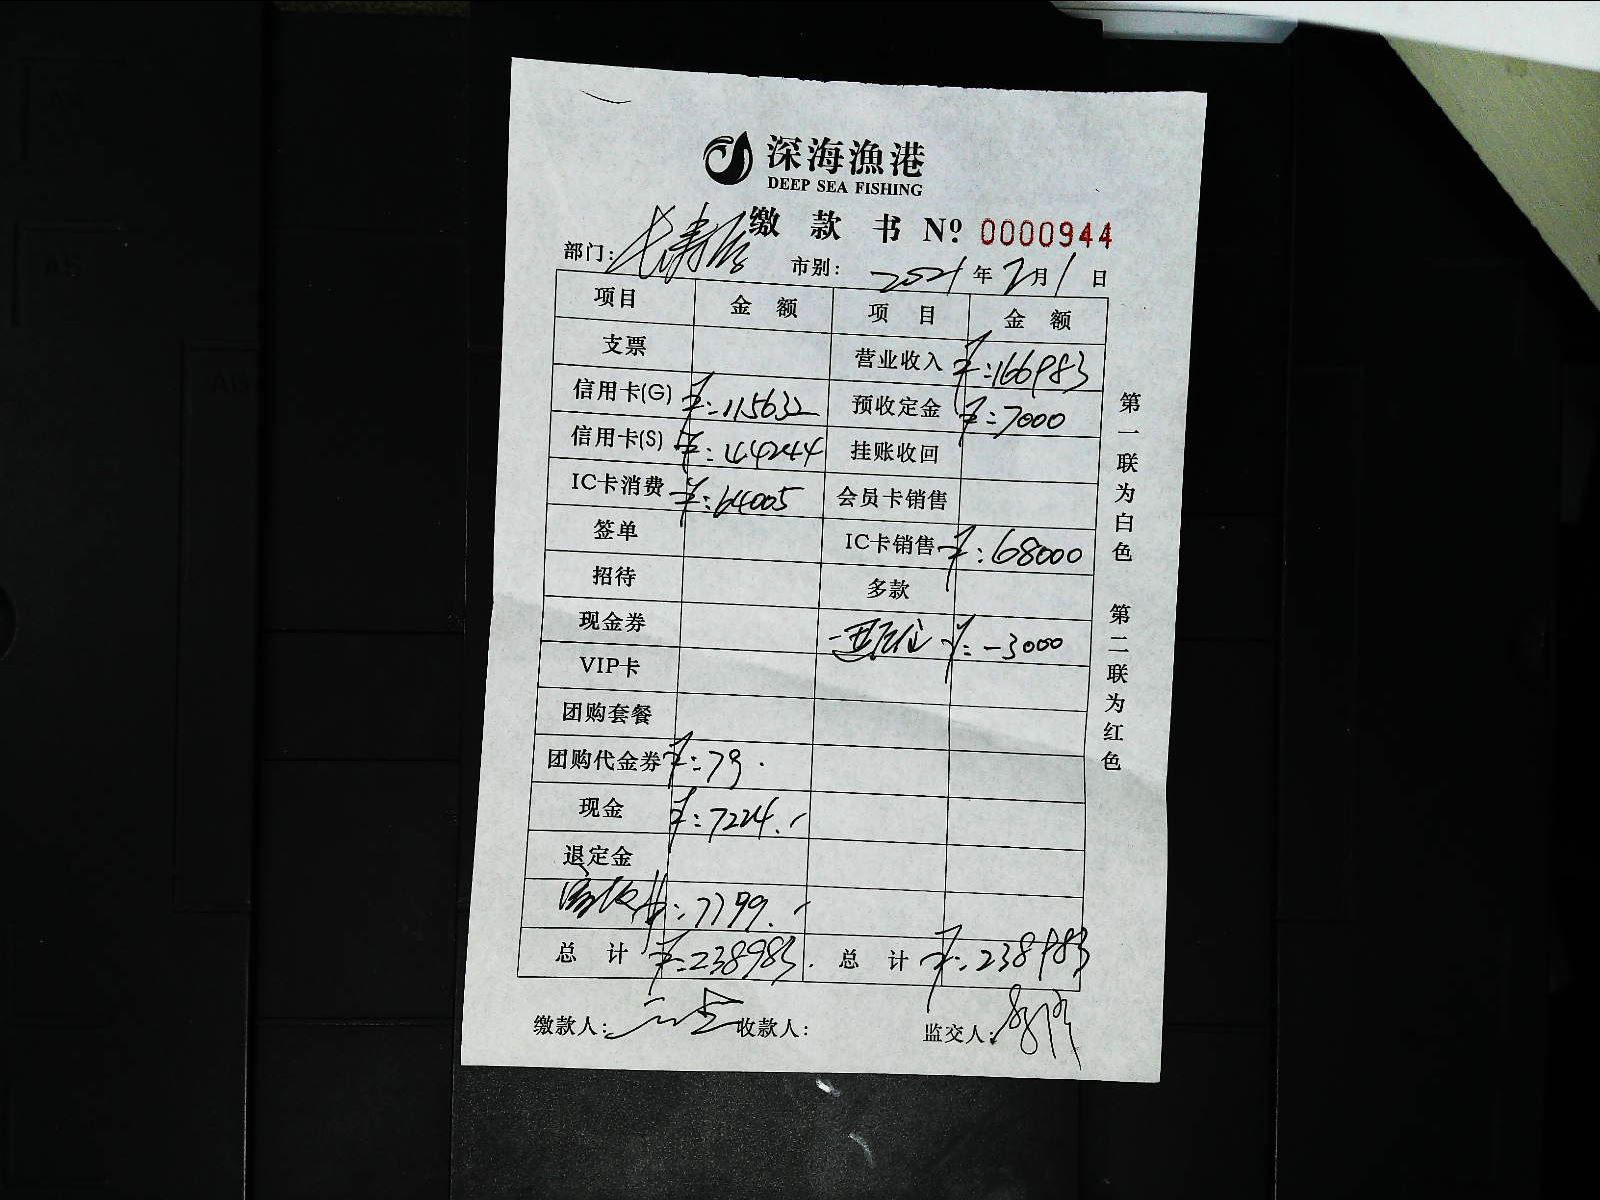 深海漁港
DEEP SEA FISHING
缴 款 书 Nº 0000944
部门: 长寿店 市别: 2021 年 2 月 1 日
项目 金 额 项 目 金 额
支票 营业收入 ¥:166983
信用卡(G) ¥:115632 预收定金 ¥:7000
信用卡(S) ¥:44244 挂账收回
IC卡消费 ¥:64005 会员卡销售
签单 IC卡销售 ¥:68000
招待 多款
现金券 ¥:-3000
VIP卡
团购套餐
团购代金券 ¥:79.
现金 ¥:7224.
退定金
¥:7799.
总 计 ¥:238983. 总 计 ¥:238983
缴款人: 收款人: 监交人:
第一联为白色 第二联为红色